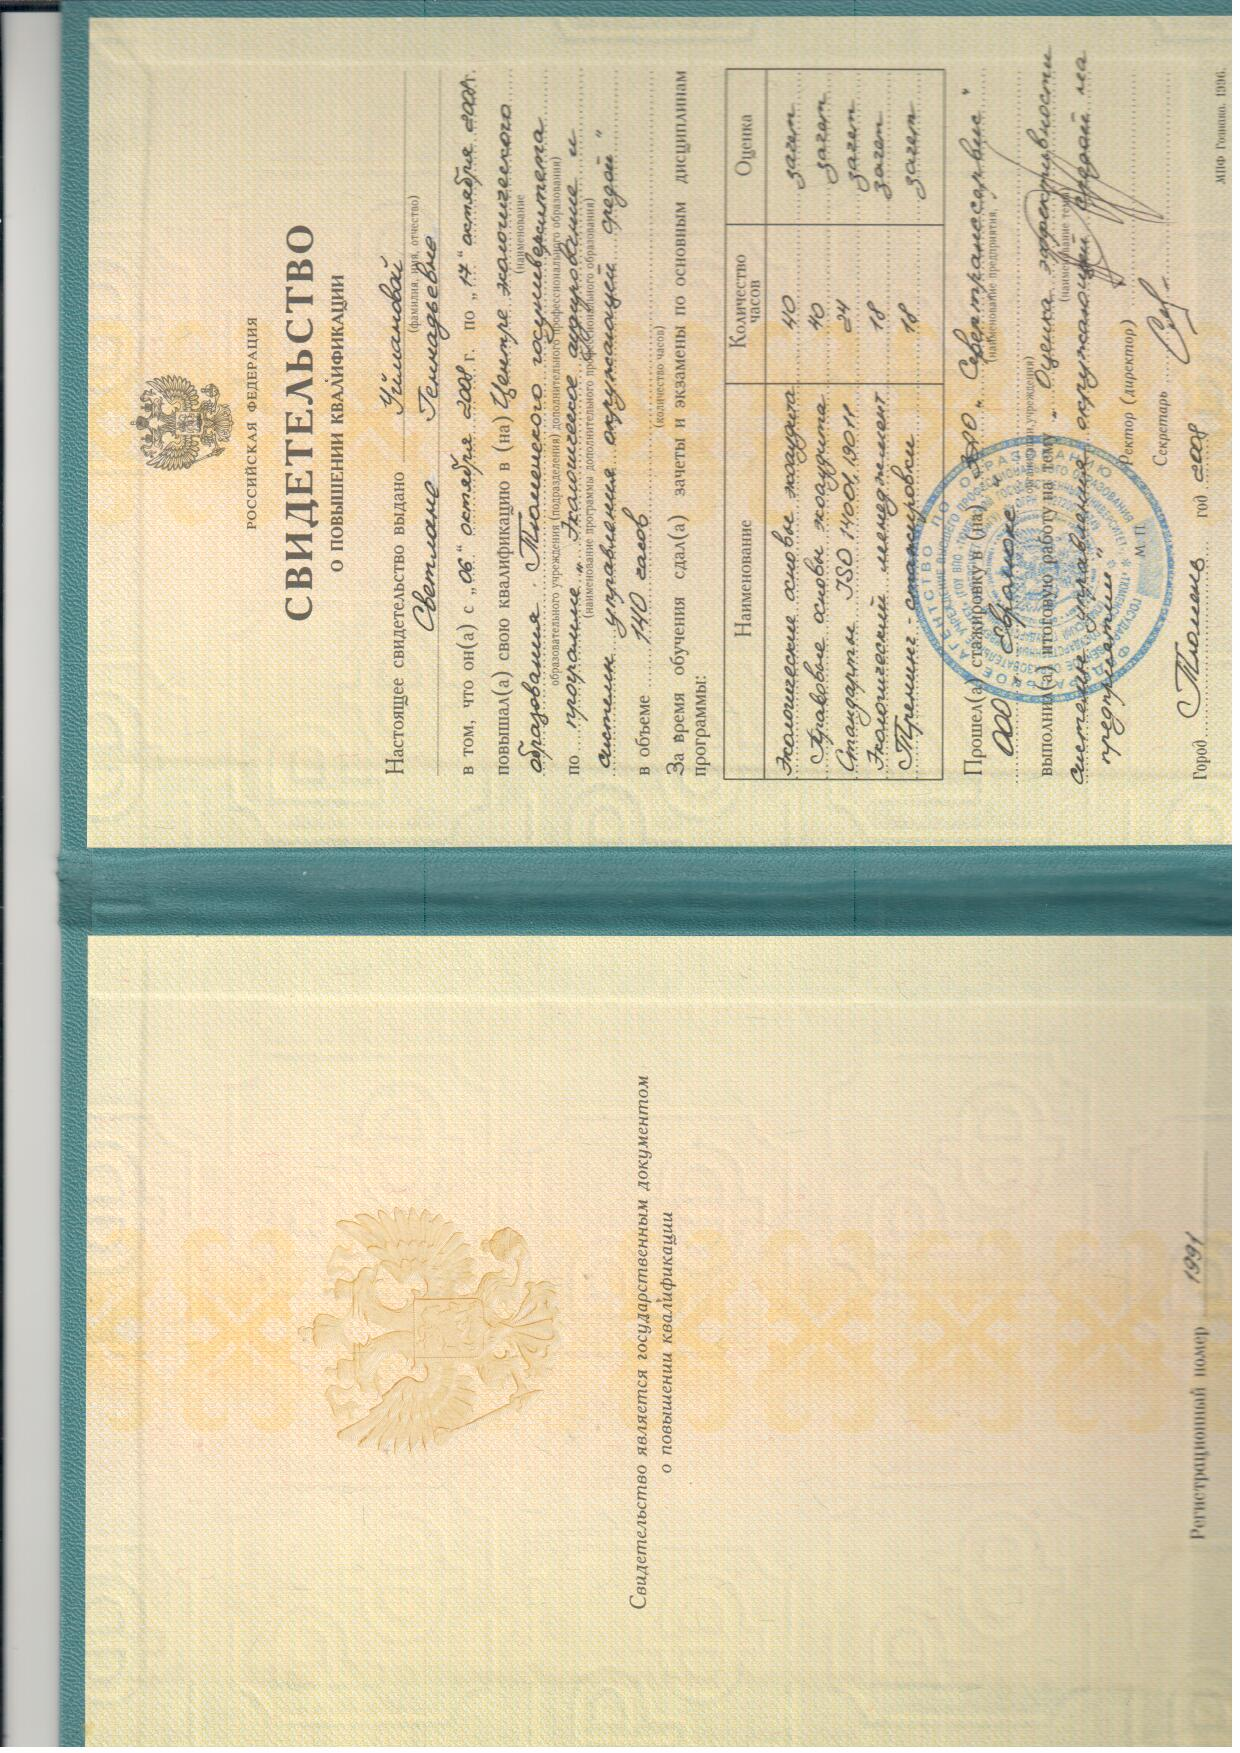 Свидетельство является государственным документом
о повышении квалификации
Регистрационный номер 1991
РОССИЙСКАЯ ФЕДЕРАЦИЯ
СВИДЕТЕЛЬСТВО
О ПОВЫШЕНИИ КВАЛИФИКАЦИИ
Настоящее свидетельство выдано Уймановой
(фамилия, имя, отчество)
Светлане Геннадьевне
в том, что он(а) с „06“ октября 2008 г. по „17“ октября 2008 г.
повышал(а) свою квалификацию в (на) Центре экологического
(наименование
образования Тюменского госуниверситета
образовательного учреждения (подразделения) дополнительного профессионального образования)
по программе „Экологическое аудирование и
(наименование программы дополнительного профессионального образования)
системы управления окружающей средой“
в объеме 140 часов
(количество часов)
За время обучения сдал(а) зачеты и экзамены по основным дисциплинам
программы:
Наименование Количество часов Оценка
Экологические основы экоаудита 40 зачет
Правовые основы экоаудита 40 зачет
Стандарты ISO 14001, 19011 24 зачет
Экологический менеджмент 18 зачет
Тренинг - стажировки 18 зачет
Прошел(а) стажировку в (на) ОАО „Сибтранссервис“
(наименование предприятия,
ООО „Евраком“
организации, учреждения)
выполнил(а) итоговую работу на тему „Оценка эффективности
(наименование темы)
системы управления окружающей средой на
предприятии“
Ректор (директор)
М. П.
Секретарь
Город Тюмень год 2008
МПФ Гознака. 1996.